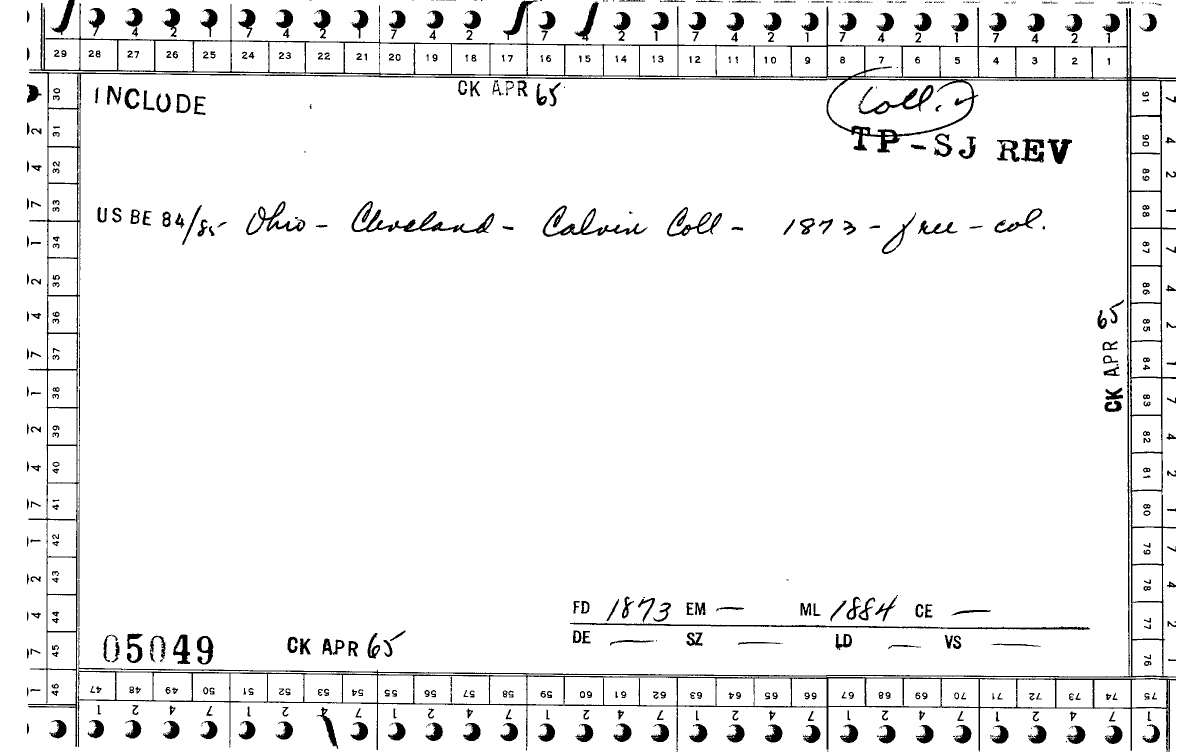 7 4 2 1 7 4 2 1 7 4 2 1 7 4 2 1 7 4 2 1 7 4 2 1 7 4 2 1
29 28 27 26 25 24 23 22 21 20 19 18 17 16 15 14 13 12 11 10 9 8 7 6 5 4 3 2 1
INCLUDE
CK APR 65
Coll.
TP-SJ REV
US BE 84/85- Ohio - Cleveland - Calvin Coll - 1873 - free - col.
CK APR 65
FD 1873 EM — ML 1884 CE —
DE — SZ — LD — VS —
05049 CK APR 65
30 31 32 33 34 35 36 37 38 39 40 41 42 43 44 45 46
91 90 89 88 87 86 85 84 83 82 81 80 79 78 77 76 75
47 48 49 50 51 52 53 54 55 56 57 58 59 60 61 62 63 64 65 66 67 68 69 70 71 72 73 74 75
1 2 4 7 1 2 4 7 1 2 4 7 1 2 4 7 1 2 4 7 1 2 4 7 1 2 4 7 1